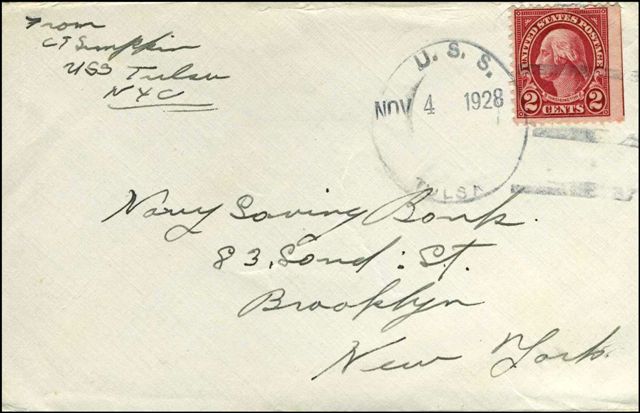 From
CT Simpkin
USS Tulsa
NYC
U.S.S.
NOV 4 1928
TULSA
UNITED STATES POSTAGE
WASHINGTON
2 CENTS 2
Navy Saving Bank.
83, Sand : St.
Brooklyn
New York.